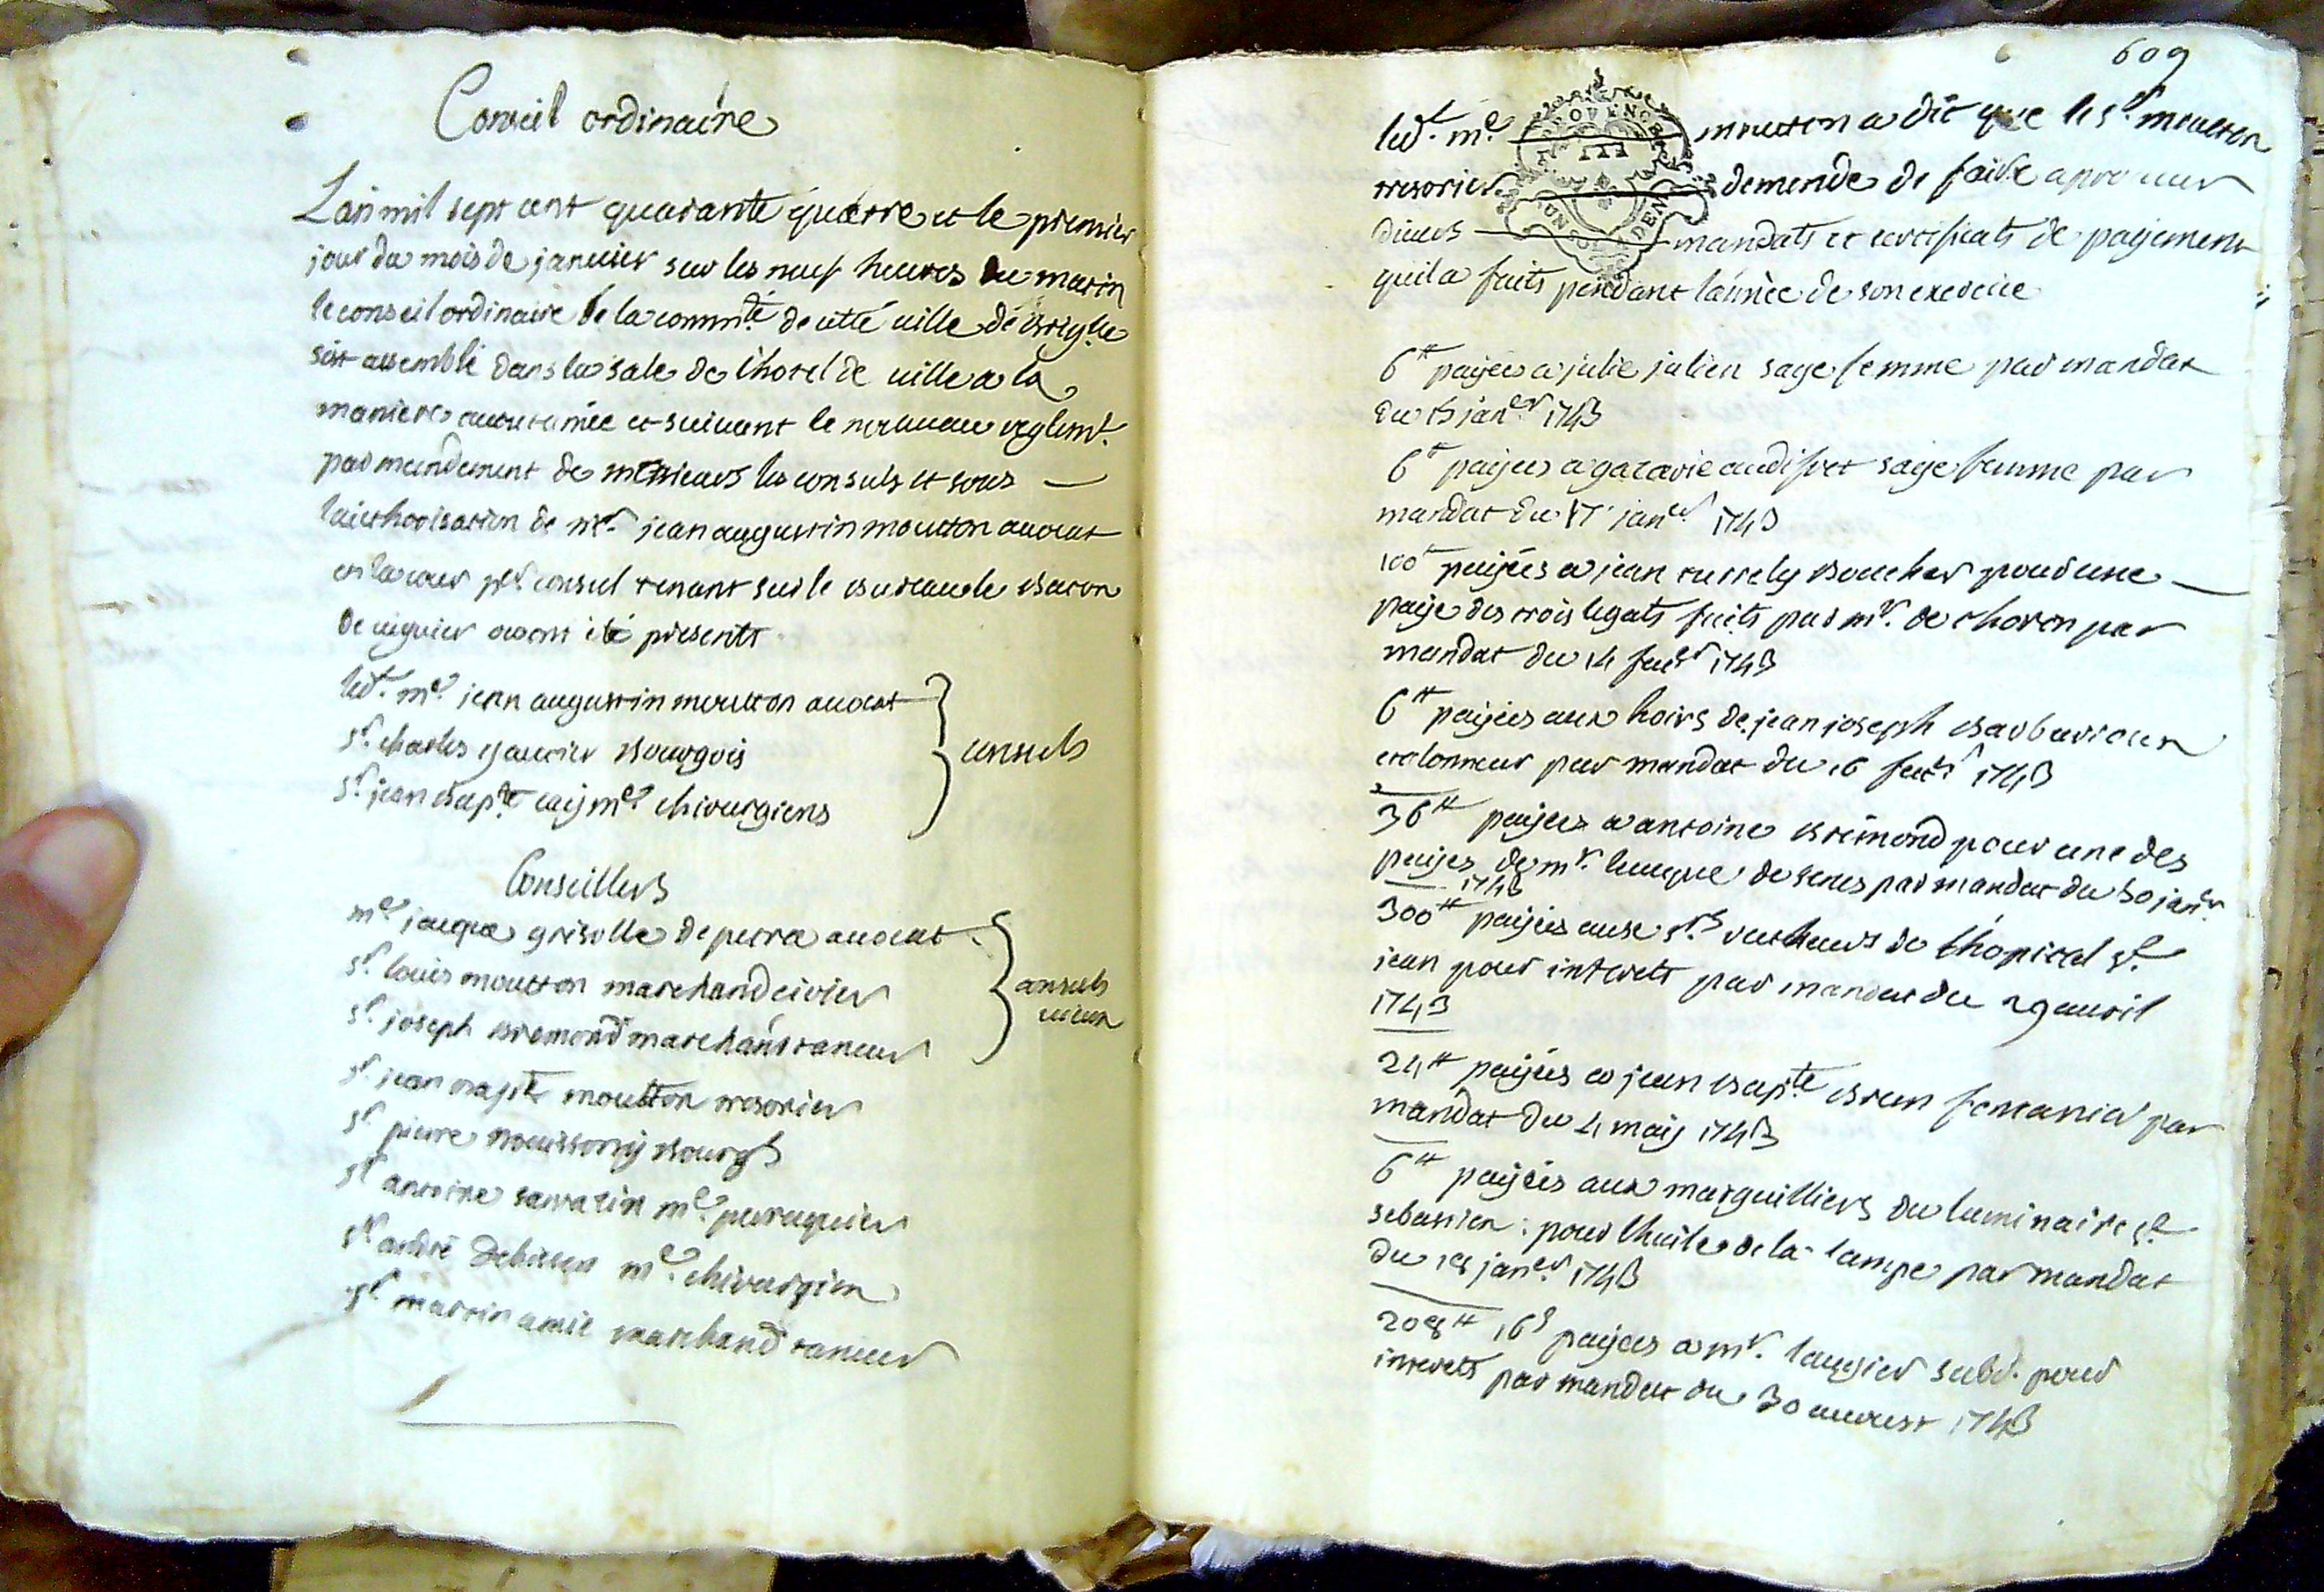 Conseil ordinaire
Lan mil sept cent quarante quattre et le premier
jour du mois de januier sur les neuf heures du matin
le conseil ordinaire de la commté de cette uille de
sest assemblé dans la sale de lhotel de uille a la
maniere acoutumée et suiuant le nouueau reglemt.
par mandement de messieurs les consuls et sous
lauthorisation de me. jean augustin moutton auocat
en la cour per consul tenant sur le bureau le baton
de uiguier ou ont été presents
led. me. jean augustin moutton auocat
sr. charles gautier bourgois
sr. jean bapte. me. chirurgiens
consuls
Conseillers
me. jaques grisolle de auocat
sr. louis moutton marchand cirier
sr. joseph bremond marchand taneur
consuls
uieux
sr. jean bapte moutton tresorier
sr pierre bourgs
sr antoine sarrazin me. peruquier
sr andré me. chirurgien
sr martin amic marchand taneur
609
led. me. moutton a dit que le sr. moutton
tresorier demende de faire aprouuer
diuers mandats et certificats de payement
quil a faits pendant lannée de son exercice
6tt payées a julie julien sage femme par mandat
du 15 janer 1743
6tt payées a sage femme par
mandat du 17 janer 1743
100tt payées a jean boucher pour une
paye des trois legats faits par mr. de thoron par
mandat du 14 feur 1743
6tt payées aux hoirs de jean joseph
par mandat du 16 feur 1743
36tt payées a antoine bremond pour une des
payes de mr. leueque de senes par mandat du 30 janer.
1743
300tt payées aux srs recteurs de lhopital st.
jean pour interets par mandat du 29 auril
1743
24tt payées a jean bapte brun par
mandat du 4 may 1743
6tt payées aux marguilliers du luminaire st.
sebastien pour lhuile de la lampe par mandat
du 18 janer 1743
208tt 16s payées a mr. laugier subd. pour
interets par mandat du 30 auoust 1743